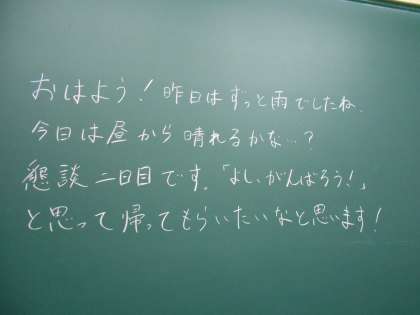 おはよう！昨日はずっと雨でしたね．
今日は昼から晴れるかな…？
懇談二日目です．「よし、がんばろう！」
と思って帰ってもらいたいなと思います！